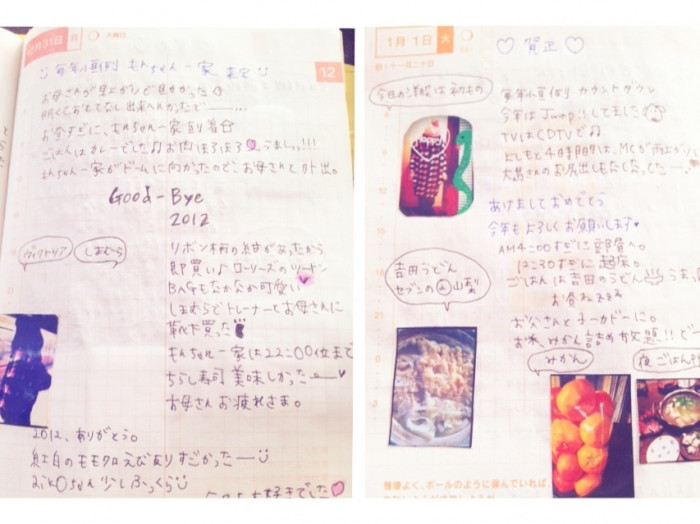 12月31日 月
毎年恒例 もんちゃん一家 来宅
12
お昼すぎに、もんちゃん一家到着
ごはんはカレーでした♪ お肉ほろほろ うまいっ!!!
もんちゃん一家がドームに向かったのでお母さんと外出。
Good-Bye
2012
ヴィクトリア
しまむら
リボン柄の紐があったから
即買い♪ ローリーズの
BAGもなかなか可愛い
しまむらでトレーナーとお母さんに
靴下買った
もんちゃん一家は22:00位まで
ちらし寿司 美味しかったー♥
お母さん お疲れさま。
2012、ありがとう。
紅白のモモクロ えびぞり すごかったー
aikoちゃん 少しふっくら
大好きでした
1月1日 火
♡ 賀正 ♡
今日の洋服は 初もの
毎年恒例 カウントダウン
今年はJump!! してました
TVはCDTVで♪
あけましておめでとう
今年もよろしくお願いします♥
AM4:00すぎに部屋へ。
12:30すぎに起床。
ごはんは吉田のうどん
お昼ねzzz
吉田うどん
セブンの 山梨
お父さんとヨーカドーに。
みかん詰め放題!!
みかん
夜ごはん
機嫌よく、ボールのように弾んでいれば、